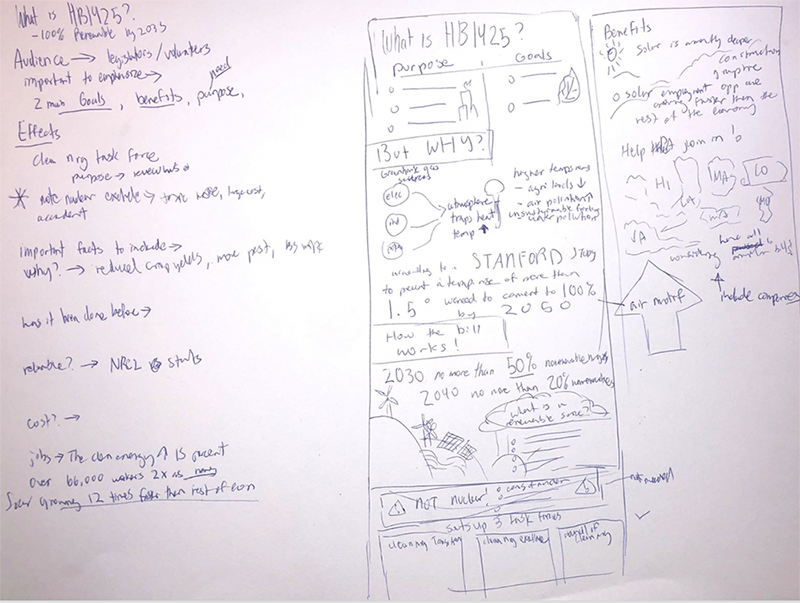 What is HB1425?
-100% Renewable by 2035
Audience → legislators/volunteers
important to emphasize →
need
2 main Goals, benefits, purpose,
Effects
Clean nrg task force
purpose →
* note nuclear exclude → toxic
accident
important facts to include →
why? → reduced crop yields, more pest,
has it been done before →
reliable? → NREL studs
cost? →
jobs → The clean energy ↑ 15 percent
over 66,000 workers 2x as many
Solar growing 12 times faster than rest of econ
What is HB1425?
Purpose
Goals
But WHY?
Greenhouse gas
elec
ind
atmosphere
traps heat
temp ↑
higher temps means
- agri levels ↓
- air pollution ↑
unsustainable farming
water pollution
according to a STANFORD study
to prevent a temp rise of more than
1.5° we need to commit to 100%
by 2050
How the bill
works!
2030 no more than 50% nonrenewables
2040 no more than 20% nonrenewables
what is a
renewable source?
NOT nuclear!
sets up 3 task forces
cleaning
cleaning
council of
cleaning
Benefits
solar is cheaper
construction
solar employment opp are
growing faster than the
rest of the economy
Help PA join in!
HI
CA
MA
CO
WA
VA
MD
considering
have all
similar bills
include companies
air motif
not needed